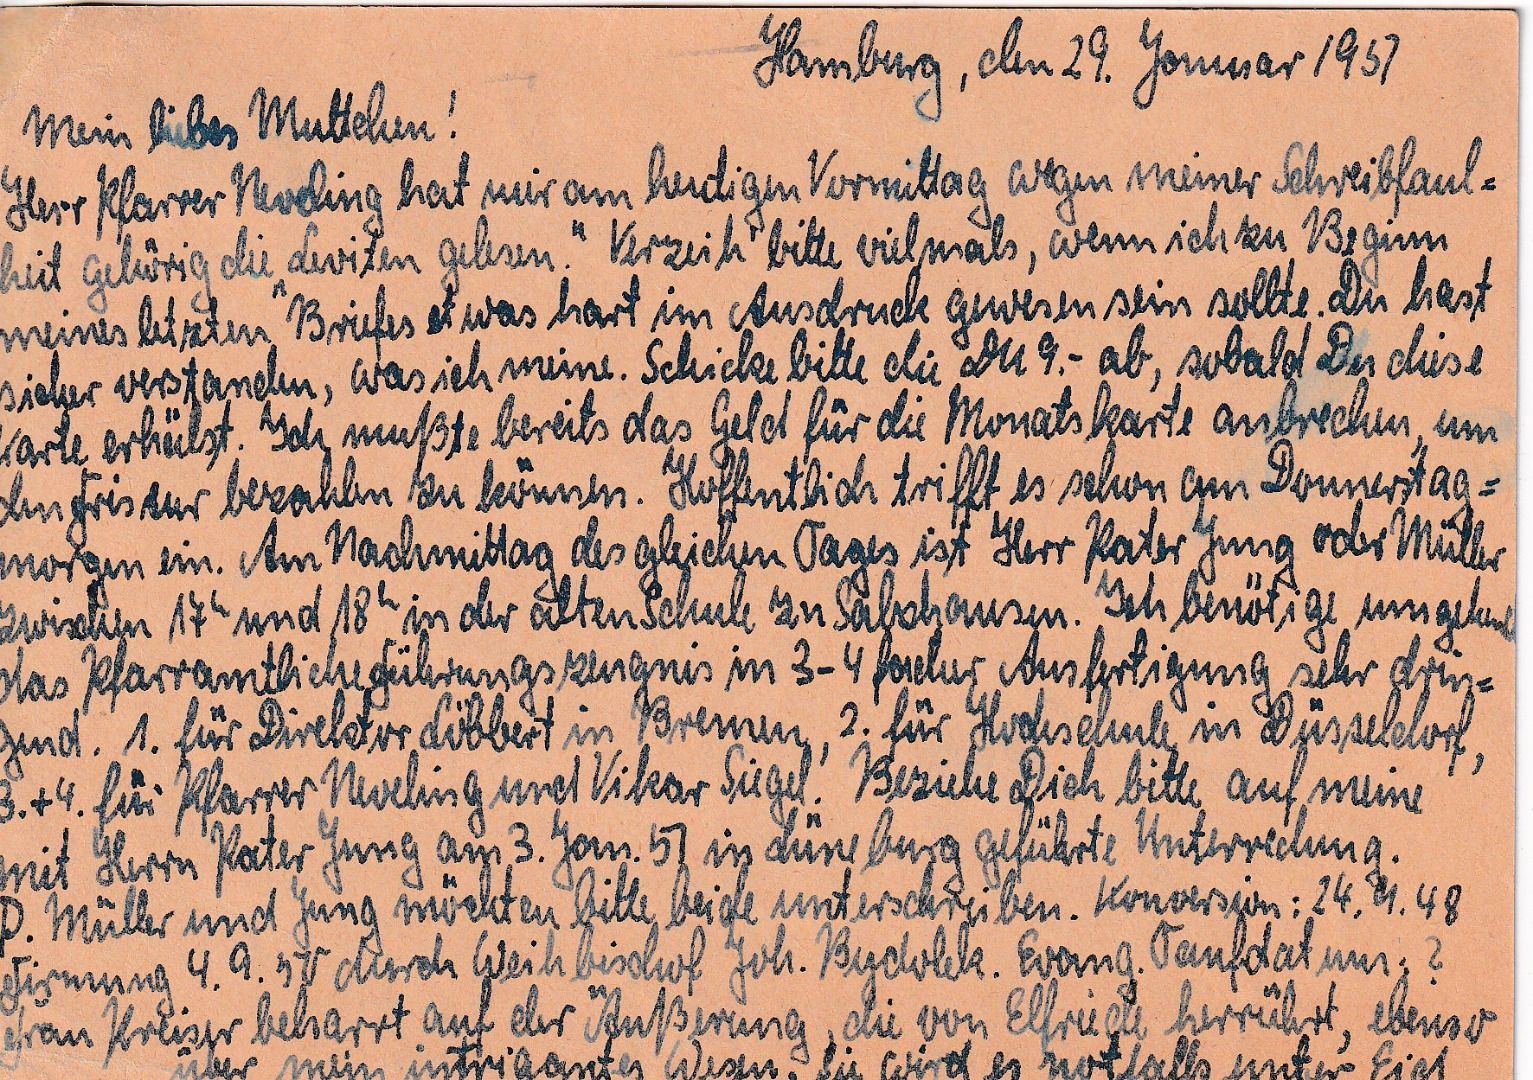 Hamburg, den 29. Januar 1957
Mein liebes Muttchen!
Herr Pfarrer Neveling hat mir am heutigen Vormittag wegen meiner Schreibfaul=
heit gehörig die „Leviten gelesen." Verzeih' bitte vielmals, wenn ich zu Beginn
meines letzten Briefes etwas hart im Ausdruck gewesen sein sollte. Du hast
sicher verstanden, was ich meine. Schicke bitte die DM 9.- ab, sobald Du diese
Karte erhälst. Ich mußte bereits das Geld für die Monatskarte anbrechen, um
den Friseur bezahlen zu können. Hoffentlich trifft es schon am Donnerstag=
morgen ein. Am Nachmittag des gleichen Tages ist Herr Pater Jung oder Müller
zwischen 17h und 18h in der alten Schule zu Salzhausen. Ich benötige umgehend
das Pfarramtliche Führungszeugnis in 3-4 facher Ausfertigung sehr drin=
gend. 1. für Direktor Löbbert in Bremen, 2. für Hochschule in Düsseldorf,
3.+4. für Pfarrer Neveling und Vikar Siegel. Beziehe Dich bitte auf meine
mit Herrn Pater Jung am 3. Jan. 57 in Lüneburg geführte Unterredung.
P. Müller und Jung möchten bitte beide unterschreiben. Konversion: 24. 4. 48
Firmung 4. 9. 50 durch Weihbischof Joh. Bydolek. Evang. Taufdatum: ?
Frau Kreiser beharrt auf der Äußerung, die von Elfriede herrührt, ebenso
über mein intrigantes Wesen. Sie wird es notfalls unter Eid